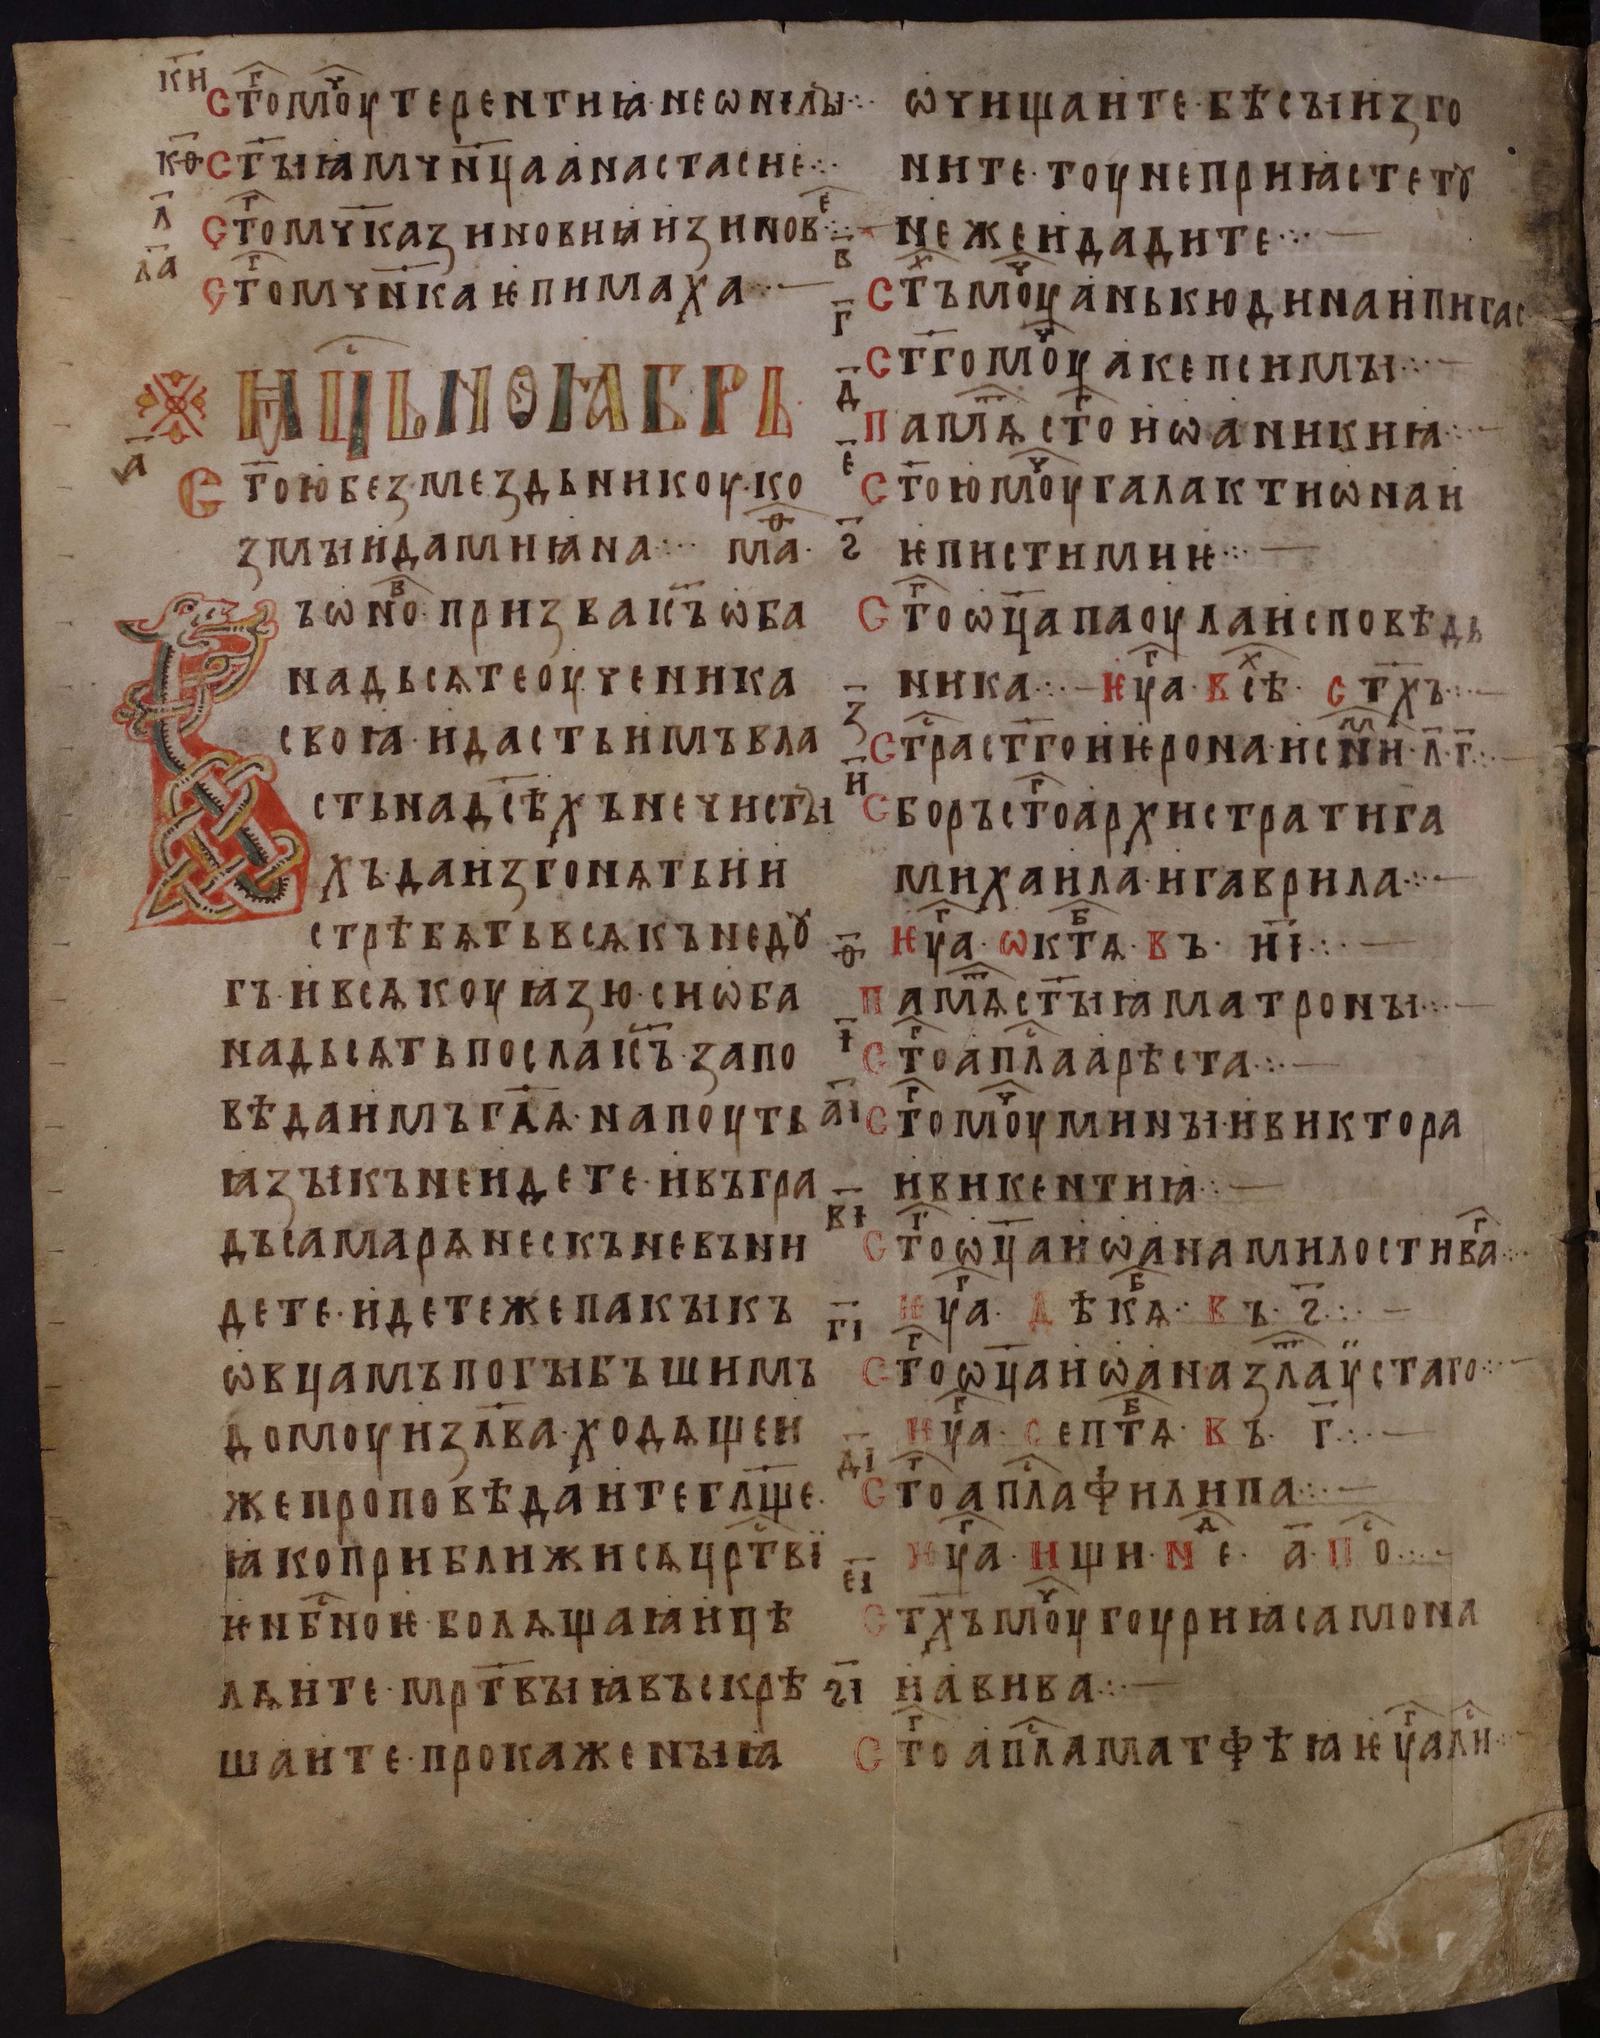 к҃н С҃тⷢомоⷱ҇у терентиꙗ· неѡнилꙑ·:·
к҃ѳ С҃тꙑꙗ мч҃нца анастасие·:·
л҃ С҃тⷢомч҃ка зиновиꙗ и зиновⷷ·:·
л҃а С҃тⷢомч҃нка ѥпимаха·:·—
Мⷭ҇ць ноꙗбрь·
а҃ С҃тою безмездьникоу· ко
змꙑ и дамиꙗна·:· маⷴ·
Въ ѡноⷡ· призва іс҃ъ ѡба
на дьсѧте оученика
своꙗ· и дасть имъ вла
сть на дс҃ѣхъ нечистꙑ
хъ· да изгонѧть ѩ и
стрѣбѧть всѧкъ недꙋ
гъ· и всѧкоу ꙗзю· си ѡба
на дьсѧть посла іс҃ъ· запо
вѣда имъ г҃лѧ· на поуть
ꙗзꙑкъ не идете· и въ гра
дъ самарѧнескъ не вънн
дете· идете же пакꙑ къ
ѡвцамъ погꙑбъшимъ
домоу из҃лва· ходѧще и
же проповѣдаите гл҃ще·
ꙗко приближисѧ црⷭ҇твї
ѥ нбⷭ҇ноѥ· болѧщаꙗ ицѣ
лѧите· мр҃твꙑꙗ въскрѣ
шаите· прокаженꙑꙗ
ѡчищаите· бѣсꙑ изго
ните· тоуне приꙗсте тꙋ
не же и дадите·:·—
в҃ С҃тъⷯ моⷱ҇у анькюдина и пигас
г҃ С҃тго моⷱ҇у акепсимꙑ·:·—
д҃ Памⷮѧ с҃тⷢо иѡаникиꙗ·:·—
е҃ С҃тою моⷱ҇у галактиѡна и
ѥпистимиѥ·:·—
ѕ҃ С҃тⷢо ѡц҃а паоула исповѣдь
ника·:·— ѥуⷢа· в сѣⷯ· с҃тхъ·:·—
з҃ Стрⷭ҇а с҃тго иѥрона· и с ниⷨ· л҃·г҃·:·—
и҃ Сборъ с҃тⷢо архистратига
михаила· и гаврила·:·—
ѥуⷢа· ѡктⷠѧ· въ· и҃і·:·—
ѳ҃ Памⷮѧ с҃тꙑꙗ матронꙑ·:·—
і҃ С҃тⷢо апⷭ҇ла арѣста·:·—
а҃і С҃тⷢо моⷱ҇у минꙑ· и виктора
и викентиꙗ·:·—
в҃і С҃тⷢо ѡц҃а иѡана милостиваⷢ·:·
ѥуⷢа· дѣкⷠѧ· въ· ѕ҃·:·—
г҃і С҃тⷢо ѡц҃а иѡана злаⷮустаго·:·—
ѥуⷢа· септⷠѧ· въ· г҃·:·—
д҃і С҃тⷢо апⷭ҇ла филипа·:·—
ѥуⷢа· ищи· неⷣ· а҃· поⷭ҇·:·—
е҃і С҃тхъ моⷱ҇у гоуриꙗ самона
и авива·:·—
ѕ҃і С҃тⷢо апⷭ҇ла матфѣꙗ ѥуⷢа лиⷭ҇·